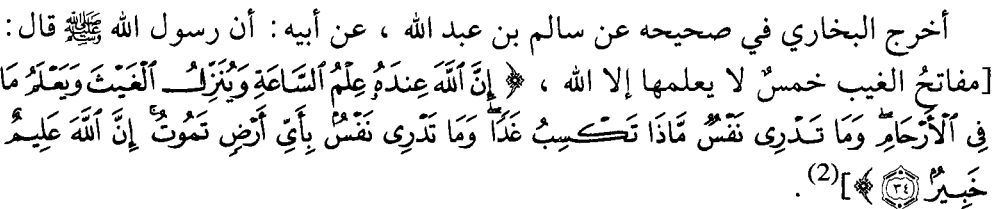 أخرج البخاري في صحيحه عن سالم بن عبد الله ، عن أبيه : أن رسول الله ﷺ قال :
[مفاتحُ الغيب خمسٌ لا يعلمها إلا الله ، ﴿ إِنَّ ٱللَّهَ عِندَهُۥ عِلۡمُ ٱلسَّاعَةِ وَيُنَزِّلُ ٱلۡغَيۡثَ وَيَعۡلَمُ مَا
فِي ٱلۡأَرۡحَامِۖ وَمَا تَدۡرِي نَفۡسٞ مَّاذَا تَكۡسِبُ غَدٗاۖ وَمَا تَدۡرِي نَفۡسُۢ بِأَيِّ أَرۡضٖ تَمُوتُۚ إِنَّ ٱللَّهَ عَلِيمٌ
خَبِيرُۢ ٣٤ ﴾](2) .